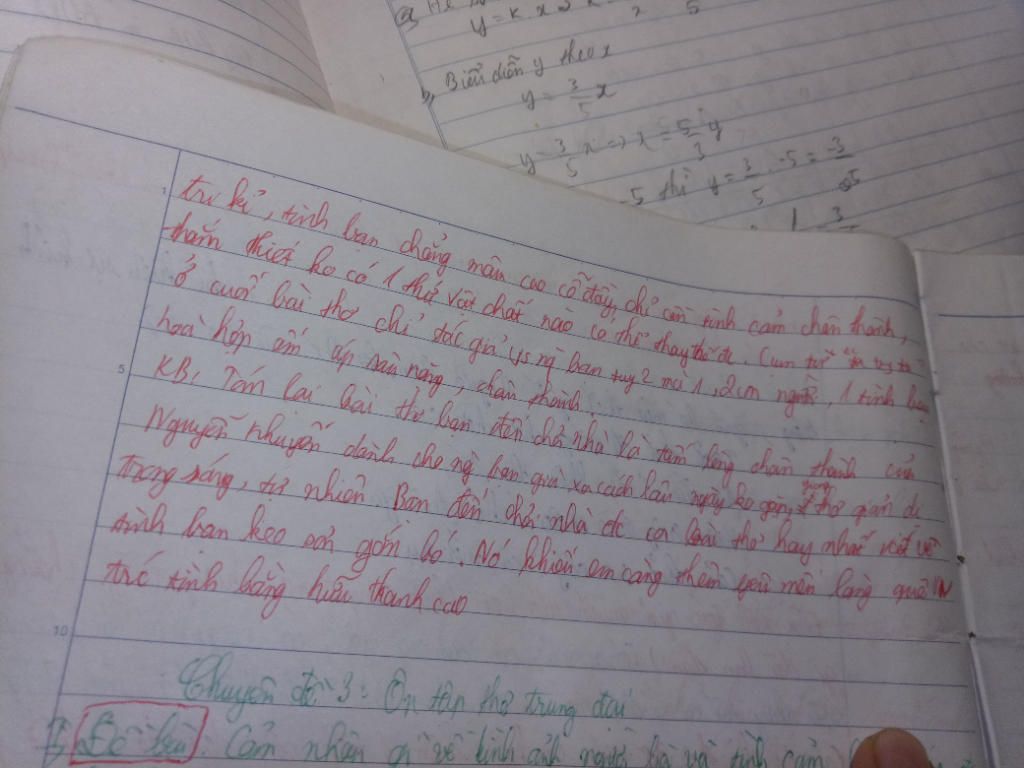 y = k x
b, Biểu diễn y theo x
y = 3/5 x
y = 3/5 x => x = 5/3 y
-5 thì y = 3/5 . -5 =
tri kỉ, tình bạn chẳng mâm cao cỗ đầy, chỉ cần tình cảm chân thành,
thắm thiết ko có 1 thứ vật chất nào có thể thay thế đc. Cụm từ
ở cuối bài thơ chỉ tác giả và ng bạn tuy 2 mà 1, 2 con người, 1 tình bạn
hoà hợp ấm áp sâu nặng, chân thành.
KB: Tóm lại bài thơ bạn đến chơi nhà là tấm lòng chân thành của
Nguyễn Khuyến dành cho ng bạn quá xa cách lâu ngày ko gặp, giọng thơ giản dị
trong sáng, tự nhiên Bạn đến chơi nhà đc coi bài thơ hay nhất viết về
tình bạn keo sơn gắn bó. Nó khiến em càng thêm yêu mến làng quê VN
trc tình bằng hữu thanh cao
Chuyên đề 3: Ôn tập thơ trung đại
Đề bài: Cảm nhận gì về hình ảnh người bà và tình cảm